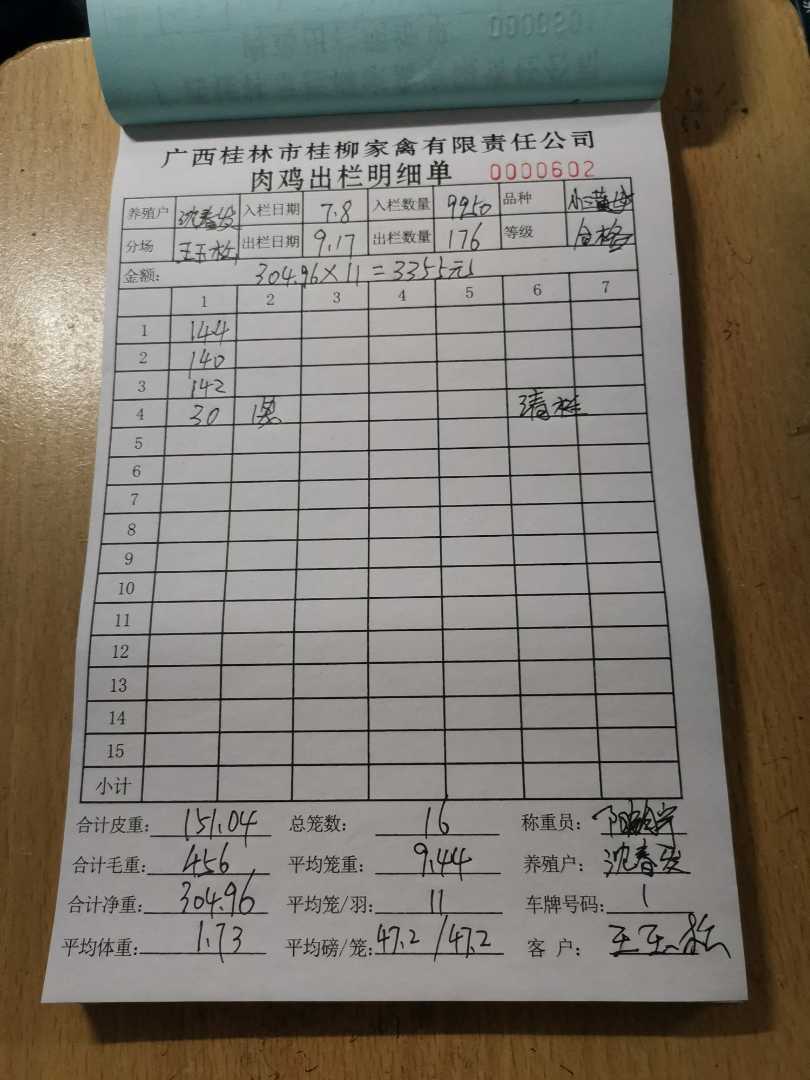 广西桂林市桂柳家禽有限责任公司
肉鸡出栏明细单 0000602
养殖户 沈春发 入栏日期 7.8 入栏数量 9950 品种
分场 出栏日期 9.17 出栏数量 176 等级 合格
金额: 304.96×11=3355元
1 2 3 4 5 6 7
1 144
2 140
3 142
4 30
5
6
7
8
9
10
11
12
13
14
15
小计
合计皮重: 151.04 总笼数: 16 称重员:
合计毛重: 456 平均笼重: 9.44 养殖户: 沈春发
合计净重: 304.96 平均笼/羽: 11 车牌号码: 1
平均体重: 1.73 平均磅/笼: 47.2/47.2 客 户: